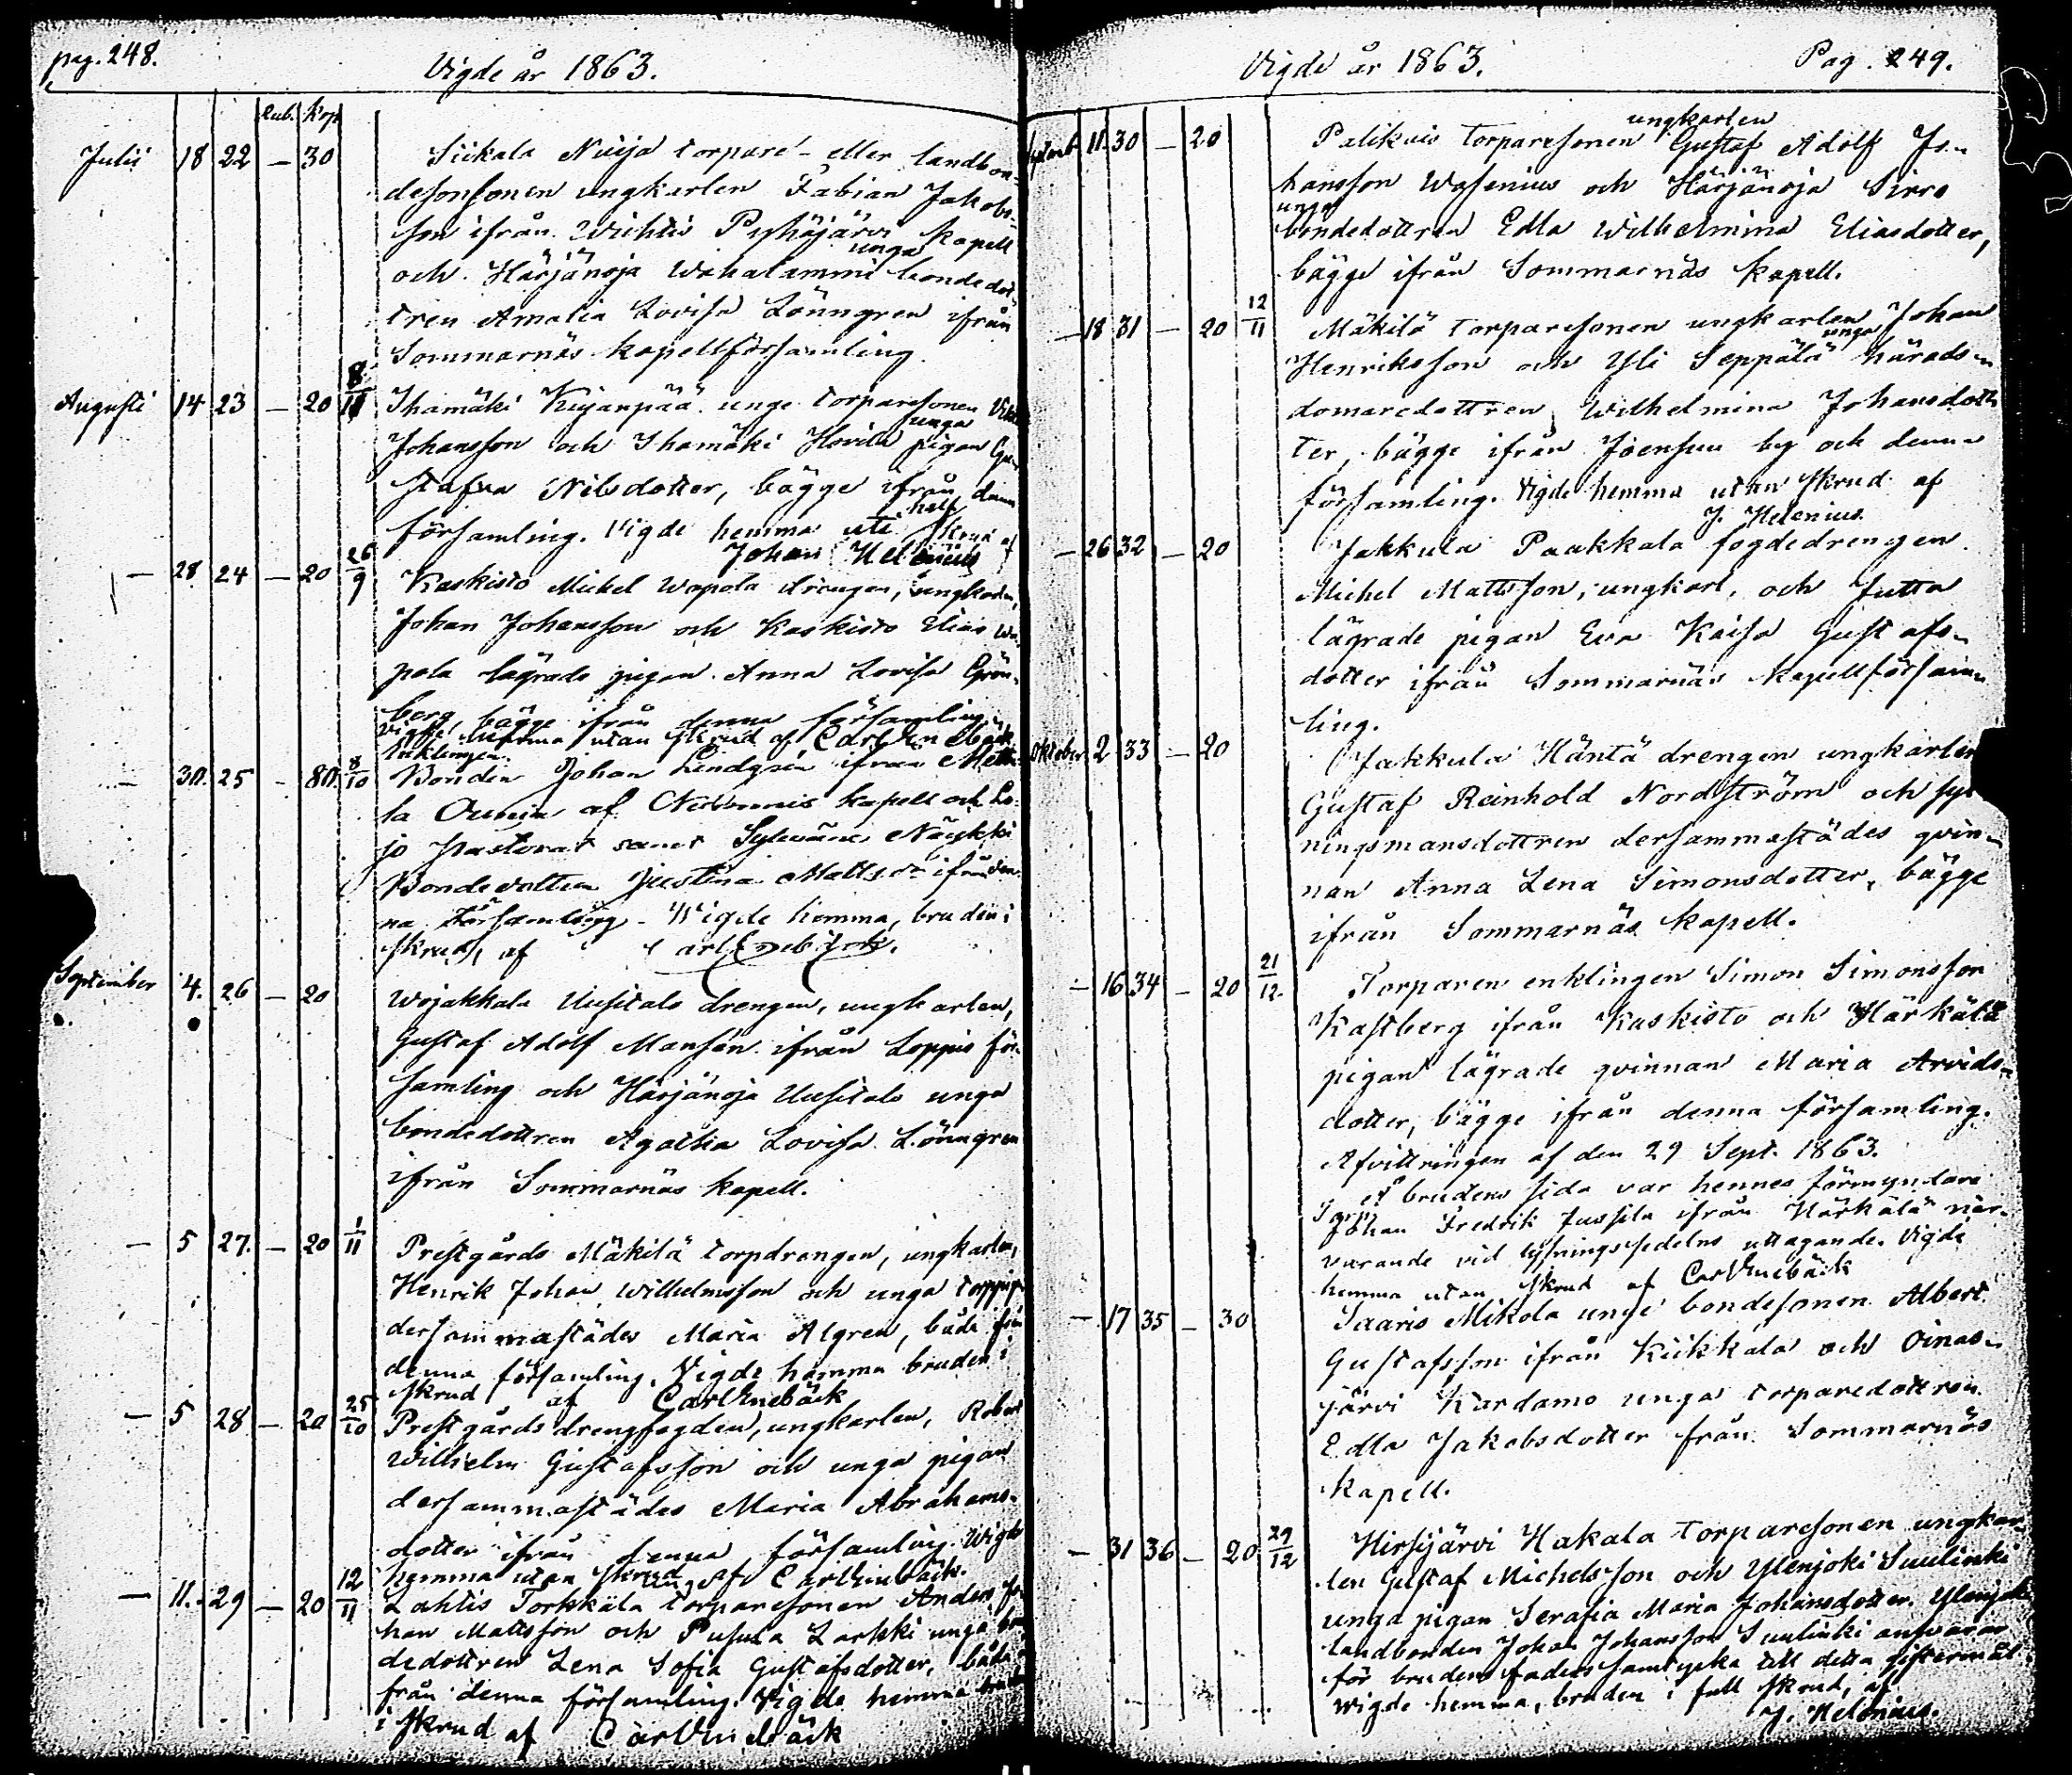 pag. 248.
Vigde år 1863.
Rub. Kop
Julii 18 22 — 30 Siikala Nuija torpare- eller landbon-
desonsonen ungkarlen Fabian Jakobs-
son ifrån Wichtis Pyhäjärvi kapell
unga
och Härjänoja Wahalammi bondedot-
tren Amalia Lovisa Lönngren ifrån
Sommarnäs kapellförsamling.
Augusti 14 23 — 20 8/11 Ihamäki Kujanpää unge torparesonen
unga
Johansson och Ihamäki Hovila pigan Gu-
stafva Nilsdotter, bägge ifrån denna
half
församling. Vigde hemma uti skrud af
Johan Helenius
— 28 24 — 20 26/9 Kaskisto Michel Wapola drengen, ungkarlen,
Johan Johansson och Kaskisto Elias Wa-
pola lägrade pigan Anna Lovisa Grön-
berg, bägge ifrån denna församling.
Vigde hemma utan skrud af Carl Enebäck
Enklingen
— 30. 25 — 80. 8/10 Bonden Johan Lindgren ifrån
la af Nummis kapell och Lo-
jo pastorat samt Näykki
Bondedottren Justina Mattsdr ifrån den-
na Församling. Wigde hemma, bruden i
skrud, af Carl Enebäck.
September 4. 26 — 20 Wojakkala Uusitalo drengen, ungkarlen,
Gustaf Adolf Mansén ifrån Loppis för-
samling och Härjänoja Uusitalo unga
bondedottren Agatha Lovisa Lönngren
ifrån Sommarnäs kapell.
— 5 27. — 20 1/11 Prestgårds Mäkilä torpdrengen, ungkarlen,
Henrik Johan Wilhelmsson och unga torppigan
dersammastädes Maria Algren, både från
denna församling. Vigde hemma bruden i
skrud af Carl Enebäck
— 5 28 — 20 25/10 Prestgårds drengfogden, ungkarlen, Robert
Wilhelm Gustafsson och unga pigan
dersammastädes Maria Abrahams-
dotter ifrån denna församling. Wigde
hemma utan skrud af Carl Enebäck.
— 11. 29 — 20 12/11 Lahtis Torkkala torparesonen Anders Jo-
han Mattsson och Pusula Larkki unga bon-
dedottren Lena Sofia Gustafsdotter, båda
från denna församling. Vigde hemma bruden
i skrud af Carl Enebäck
Vigde år 1863.
Pag. 249.
ungkarlen
Septemb 11 30 — 20 Palikais torparesonen Gustaf Adolf Jo-
hansson Wasenius och Härjänoja Sirro
unga
bondedottren Edla Wilhelmina Eliasdotter,
bägge ifrån Sommarnäs kapell.
— 18 31 — 20 12/11 Mäkilä torparesonen ungkarlen Johan
unga
Henriksson och Yli Seppälä härads-
domaredottren Wilhelmina Johansdot-
ter, bägge ifrån Joensuu by och denna
församling. Vigde hemma utan skrud af
J. Helenius.
— 26 32 — 20 Jakkula Paakkala fogdedrengen
Michel Mattsson, ungkarl, och Jutta
lägrade pigan Eva Kaisa Gustafs-
dotter ifrån Sommarnäs kapellförsam-
ling.
Oktober 2 33 — 20 Jakkula Häntä drengen ungkarlen
Gustaf Reinhold Nordström och syt-
ningsmansdottren dersammastädes qvin-
nan Anna Lena Simonsdotter, bägge
ifrån Sommarnäs kapell.
— 16 34 — 20 21/12. Torparen enklingen Simon Simonsson
Kastberg ifrån Kaskisto och Härkälä
pigan lägrade qvinnan Maria Arvids-
dotter, bägge ifrån denna församling.
Afvittringen af den 29 Sept. 1863.
å brudens sida var hennes förmyndare
Johan Fredrik Jussila ifrån Härkälä när-
varande vid lysningssedelns uttagande. Vigde
hemma utan skrud af Carl Enebäck
— 17 35 — 30 Saaris Mikola unge bondesonen Albert
Gustafsson ifrån Kiikkala och Oinas-
järvi Kardamo unga torparedottren
Edla Jakobsdotter från Sommarnäs
kapell.
— 31 36 — 20 29/12 Hirsijärvi Hakala torparesonen ungkar-
len Gustaf Michelsson och Ylenjoki Suulinki
unga pigan Serafia Maria Johansdotter. Ylenjoki
landbonden Johan Johansson Suulinki ansvarar
för brudens faders samtycke till detta giftermål.
Wigde hemma, bruden i full skrud, af
J. Helenius.